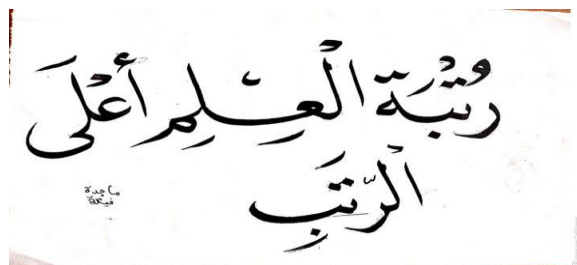 رُتْبَة الْعِلْمِ أَعْلَى
الْرّتَبِ
ماجدة